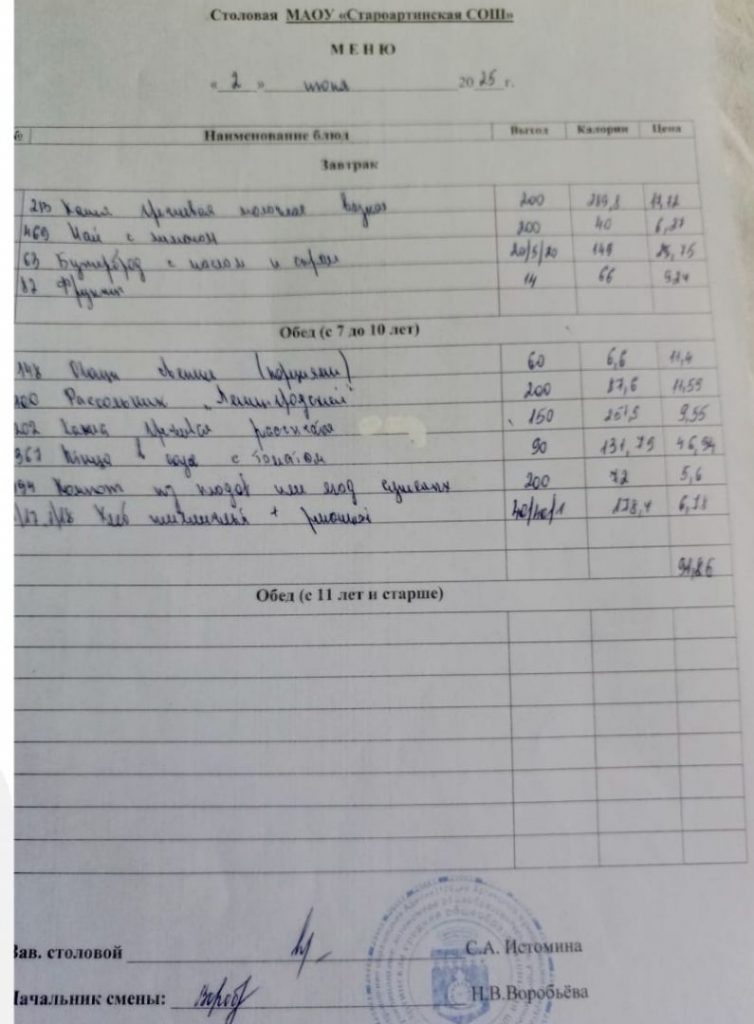 Столовая МАОУ «Староартинская СОШ»
МЕНЮ
« 2 » июня 2025 г.
№ Наименование блюд Выход Калории Цена
Завтрак
213 Каша гречневая молочная вязкая 200 219,8
469 Чай с лимоном 200 40
63 Бутерброд с маслом и сыром 20/5/20 149 25,75
Фрукты 14 66
Обед (с 7 до 10 лет)
148 Овощи свежие (порциями) 60 6,6 11,4
100 Рассольник „Ленинградский" 200 87,6 11,55
202 Каша гречневая рассыпчатая 150 9,55
367 Птица в соусе с томатом 90 131,79 46,94
494 Компот из плодов или ягод сушеных 200 72 5,6
Хлеб пшеничный + ржаной 40/40/1 178,4 6,78
91,86
Обед (с 11 лет и старше)
Зав. столовой С.А. Истомина
Начальник смены: Н.В.Воробьёва